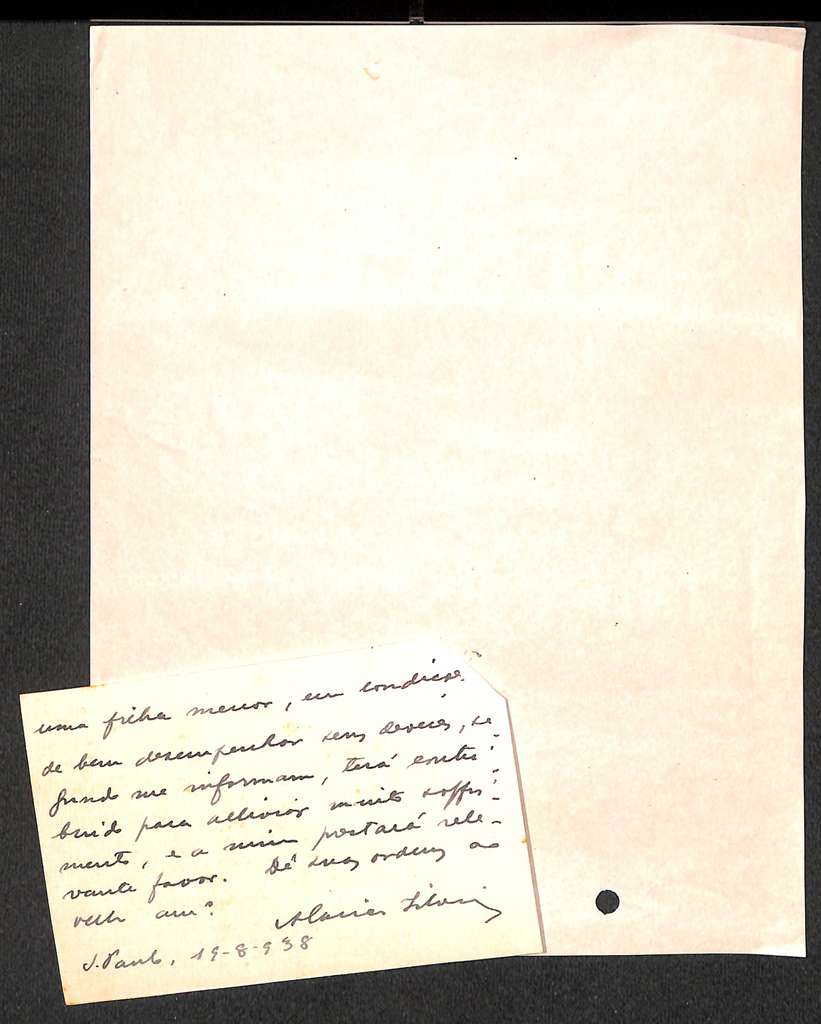 uma filha menor, em condições
de bem desempenhar seus deveres, se-
gundo me informam, terá contri-
buido para alliviar muito soffri-
mento, e a mim prestará rele-
vante favor. Dê suas ordens ao
velho amº
S. Paulo, 19-8-938